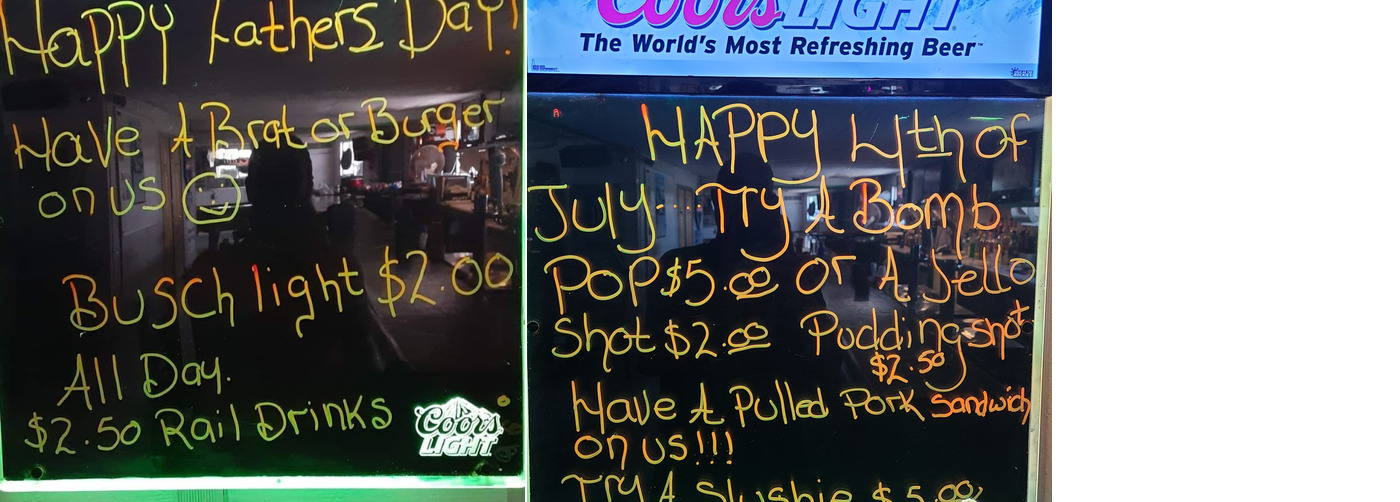 Happy Fathers Day!
Have A Brat or Burger
on us
Busch light $2.00
All Day.
$2.50 Rail Drinks
Coors
LIGHT
Coors LIGHT
The World's Most Refreshing Beer™
HAPPY 4th of
July.... Try A Bomb
POP $5.00 or A Jello
Shot $2.00 Pudding shot
$2.50
Have A Pulled Pork Sandwich
on us!!!
TRY A Slushie $5.00